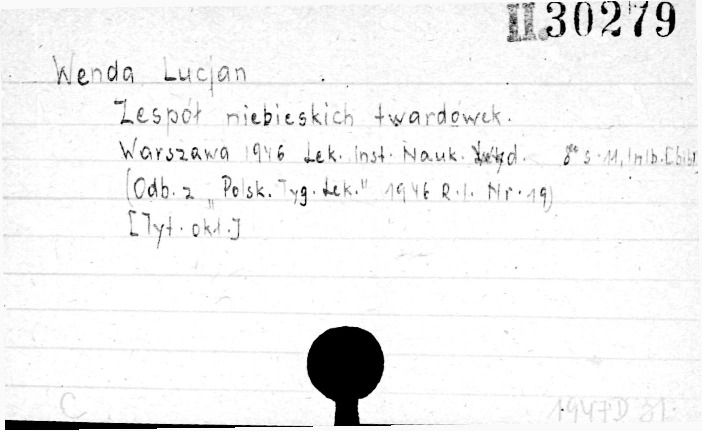 II.30279
Wenda Lucjan
Zespół niebieskich twardówek.
Warszawa 1946 Lek. Inst. Nauk. Wyd. 8° s. 11, 1 nlb. [bibl.
(Odb. z „Polsk. Tyg. Lek." 1946 R. I. Nr. 19)
[Tyt. okł.]
C
1947D